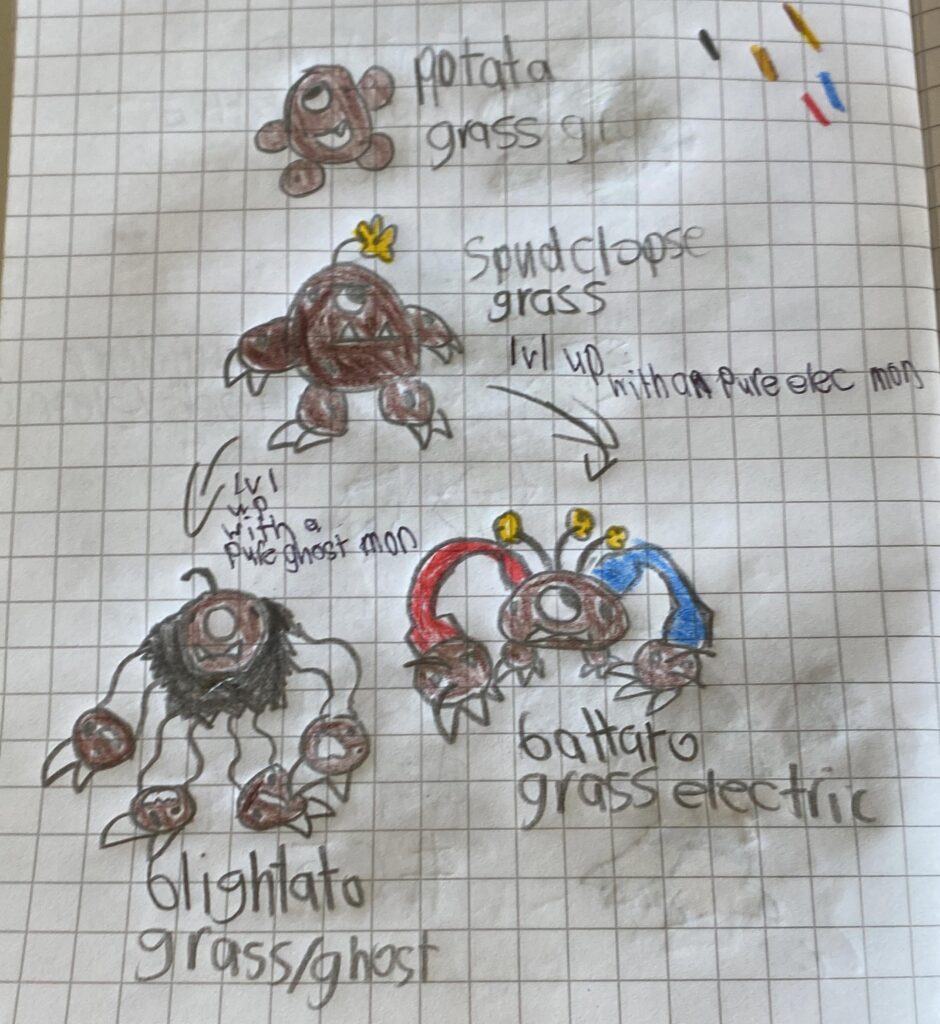 potata
grass
spudclopse
grass
lvl up
with an pure elec mon
lvl
up
with a
pure ghost mon
battato
grass electric
blightato
grass/ghost